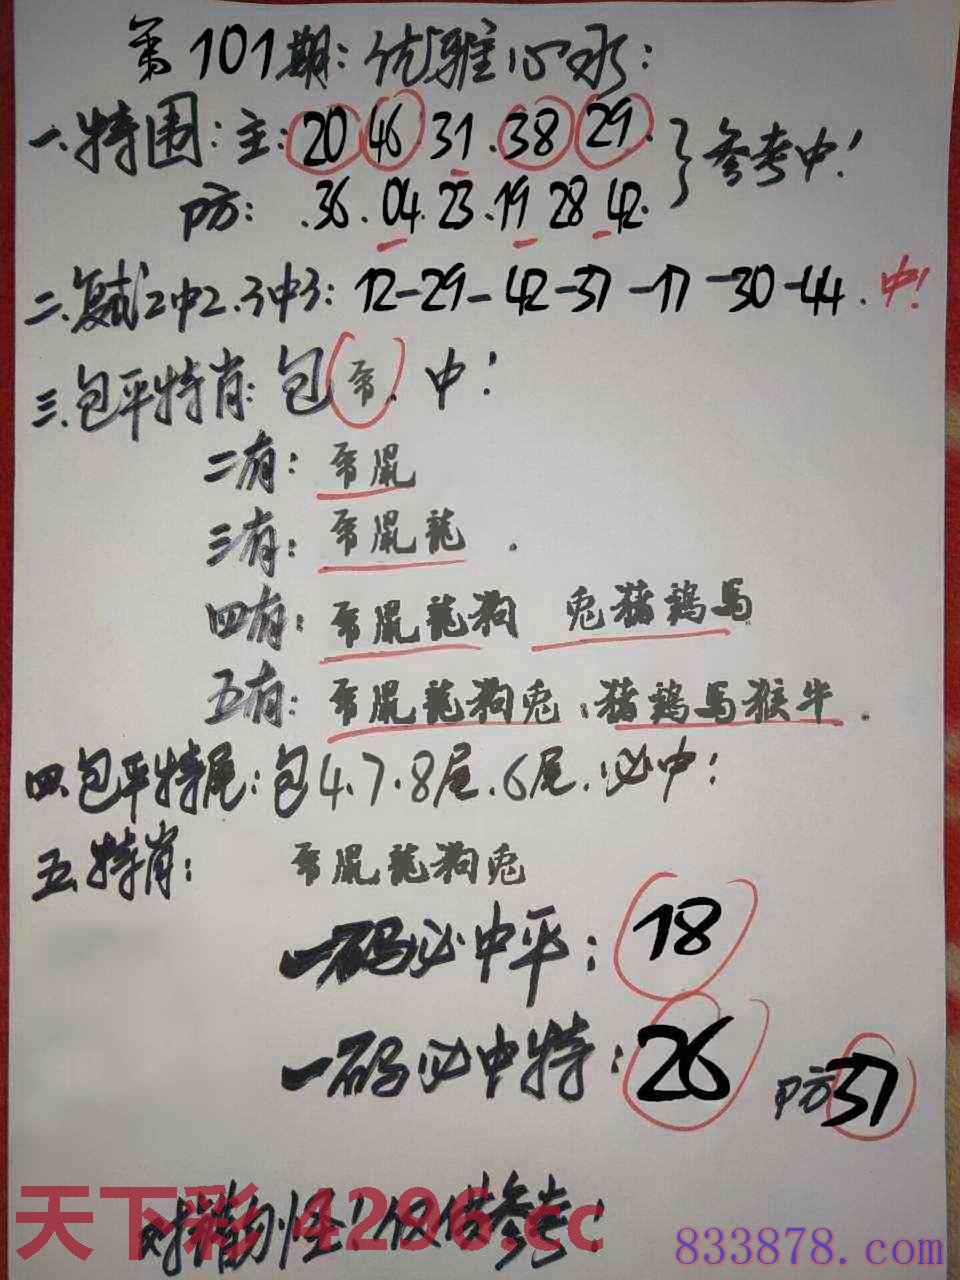 第101期：优雅心水：
一.特围：主：20 46 31.38 29.
防：.36.04.23.19 28 42.
参考中！
二.复试2中2.3中3：12-29-42-37-17-30-44.中！
三.包平特肖：包 .中！
二有：鼠
三有：鼠龍.
四有：鼠龍狗 兔猪鷄马
五有：鼠龍狗兔.猪鷄马猴牛.
四.包平特尾：包4.7.8尾.6尾.必中！
五.特肖：鼠龍狗兔
一码必中平：18
一码必中特：26 防37
猜勿怪！仅供参考！
天下彩 4296.cc
833878.com